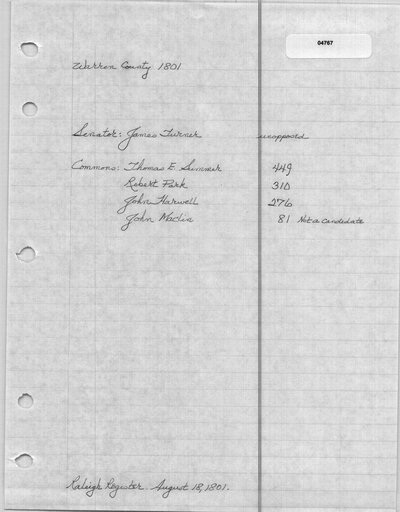 04767
Warren County 1801
Senator: James Turner unopposed
Commons: Thomas E. Sumner 449
Robert Park 310
John Harwell 276
John Maclin 81 Not a candidate
Raleigh Register. August 18, 1801.